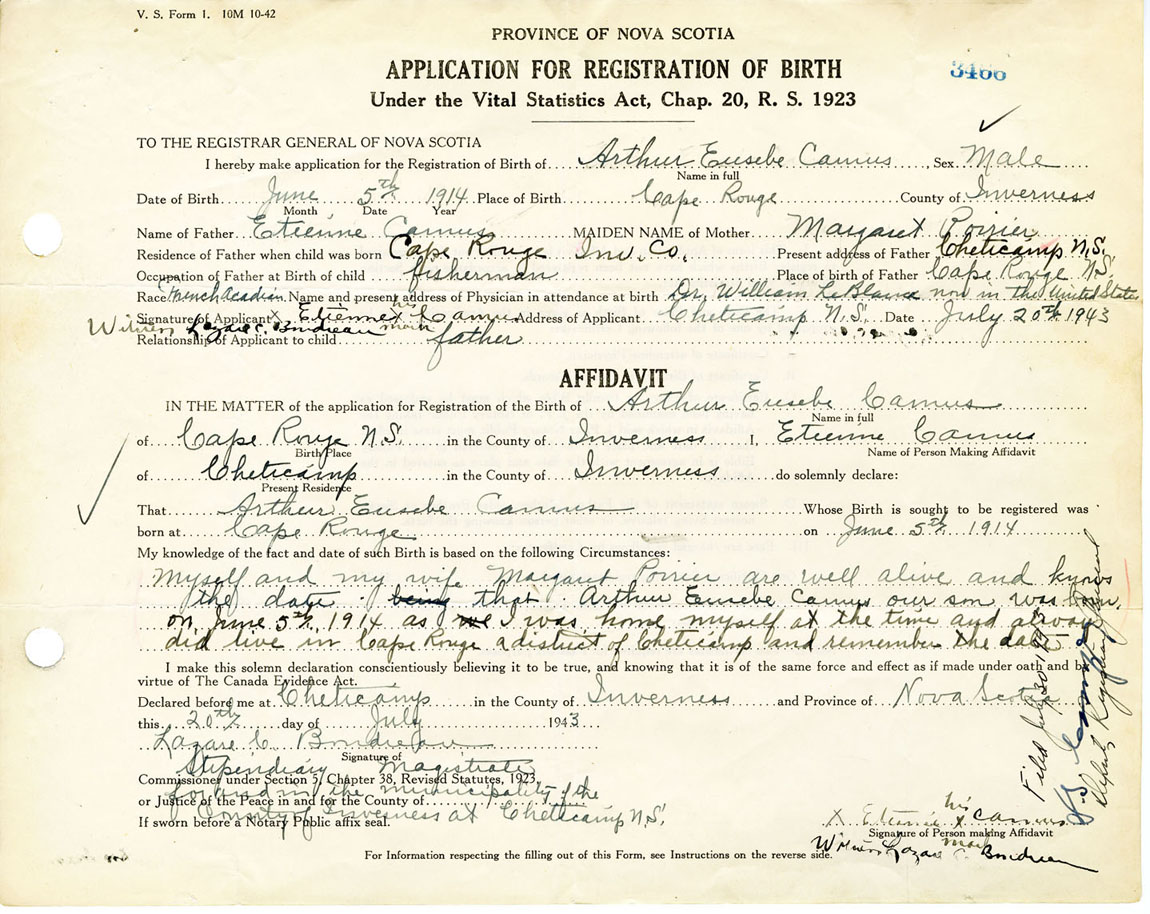 V. S. Form 1. 10M 10-42
PROVINCE OF NOVA SCOTIA
APPLICATION FOR REGISTRATION OF BIRTH
3466
Under the Vital Statistics Act, Chap. 20, R. S. 1923
TO THE REGISTRAR GENERAL OF NOVA SCOTIA
I hereby make application for the Registration of Birth of Arthur Eusebe Camus, Sex Male
Name in full
Date of Birth June 5th 1914 Place of Birth Cape Rouge County of Inverness
Month Date Year
Name of Father Etienne Camus MAIDEN NAME of Mother Margaret Poirier
Residence of Father when child was born Cape Rouge Inv. Co. Present address of Father Cheticamp N.S.
Occupation of Father at Birth of child fisherman Place of birth of Father Cape Rouge N.S.
Race French Acadian Name and present address of Physician in attendance at birth Dr. William LeBlanc now in the United States
Signature of Applicant X Etienne his x mark Camus Address of Applicant Cheticamp N.S. Date July 20th 1943
Witness Lazare C. Boudreau
Relationship of Applicant to child father
AFFIDAVIT
IN THE MATTER of the application for Registration of the Birth of Arthur Eusebe Camus
Name in full
of Cape Rouge N.S. in the County of Inverness I, Etienne Camus
Birth Place Name of Person Making Affidavit
of Cheticamp in the County of Inverness do solemnly declare:
Present Residence
That Arthur Eusebe Camus Whose Birth is sought to be registered was
born at Cape Rouge on June 5th 1914
My knowledge of the fact and date of such Birth is based on the following Circumstances:
Myself and my wife Margaret Poirier are well alive and knows
the date being that Arthur Eusebe Camus our son was born
on June 5th, 1914 as I was home myself at the time and always
did live in Cape Rouge a district of Cheticamp and remember the date
I make this solemn declaration conscientiously believing it to be true, and knowing that it is of the same force and effect as if made under oath and by
virtue of The Canada Evidence Act.
Declared before me at Cheticamp in the County of Inverness and Province of Nova Scotia
this 20th day of July 1943
Lazare C. Boudreau
Signature of
Stipendiary Magistrate
Commissioner under Section 5, Chapter 38, Revised Statutes, 1923,
for and in the municipality of the
or Justice of the Peace in and for County of
County of Inverness at Cheticamp N.S.
If sworn before a Notary Public affix seal.
X Etienne his x mark Camus
Signature of Person making Affidavit
Witness Lazare C. Boudreau
For Information respecting the filling out of this Form, see Instructions on the reverse side.
Filed July 30